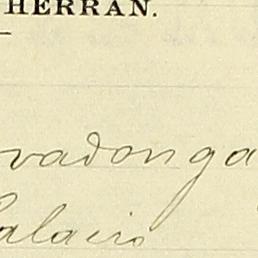 HERRAN.
vadonga
alairo